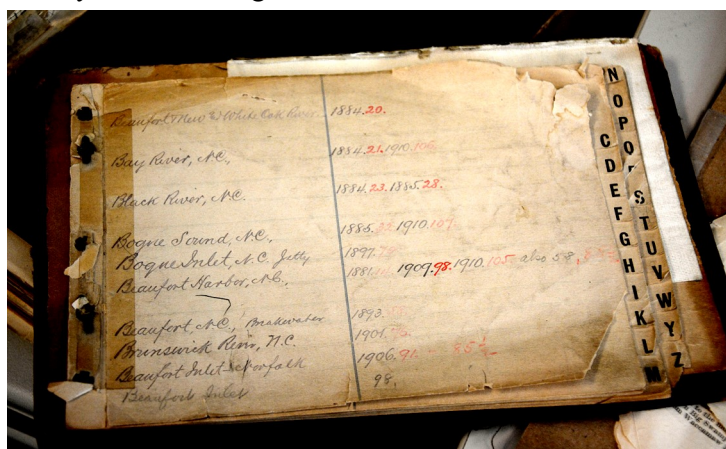 Beaufort & New & White Oak River 1884.20.
Bay River, N.C. 1884.21.1910.106.
Black River, N.C. 1884.23.1885.28.
Bogue Sound, N.C. 1885. 1910.107.
Bogue Inlet, N.C. Jetty 1897.
Beaufort Harbor, N.C. 1881. 1909.98.1910.105 also 58,
Beaufort, N.C., Breakwater 1893.
Brunswick River, N.C. 1901.
Beaufort Inlet-Norfolk 1906.91. 85½
Beaufort Inlet 98.
N
O
P
Q
R
S
T
U
V
W
Y
Z
C
D
E
F
G
H
I
K
L
M